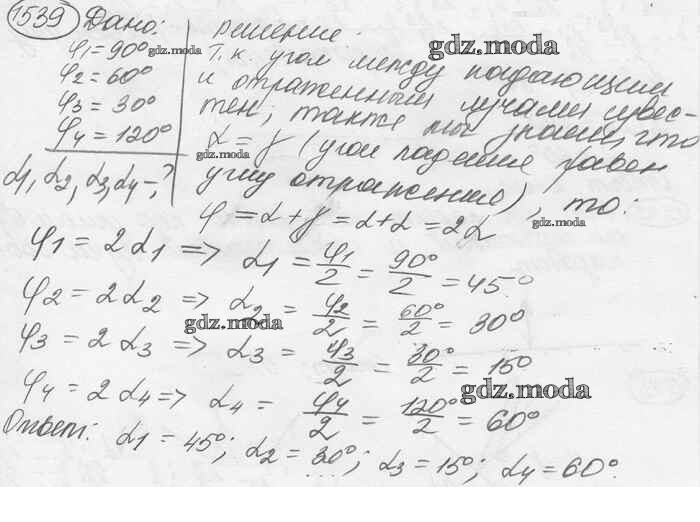 1539 Дано:
φ1 = 90°
φ2 = 60°
φ3 = 30°
φ4 = 120°
α1, α2, α3, α4 - ?
решение.
Т.к. угол между падающим
и отраженным лучами извес-
тен; также мы знаем, что
α = γ (угол падения равен
углу отражения), то:
φ = α + γ = α + α = 2α
φ1 = 2α1 => α1 = φ1/2 = 90°/2 = 45°
φ2 = 2α2 => α2 = φ2/2 = 60°/2 = 30°
φ3 = 2α3 => α3 = φ3/2 = 30°/2 = 15°
φ4 = 2α4 => α4 = φ4/2 = 120°/2 = 60°
Ответ: α1 = 45°; α2 = 30°; α3 = 15°; α4 = 60°.
gdz.moda
gdz.moda
gdz.moda
gdz.moda
gdz.moda
gdz.moda